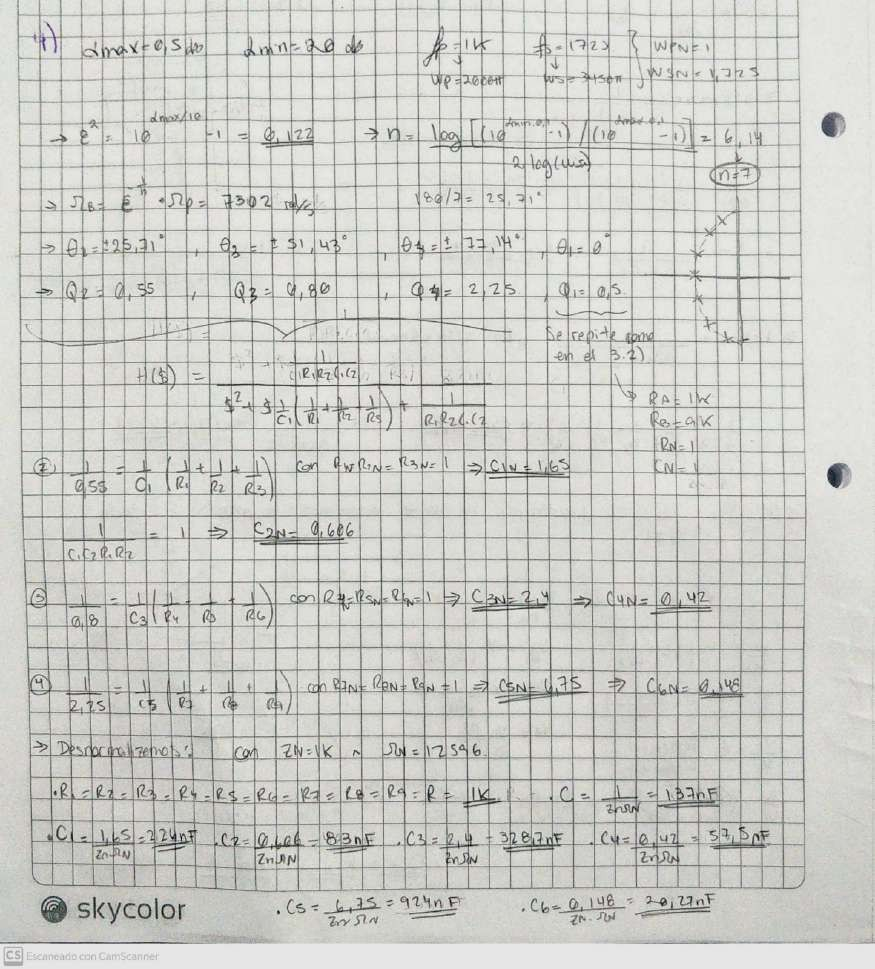 4) αmax=0,5 db αmin=20 db fp=1K fs=1725 } WPN=1
↓ ↓
wp=2000π ws=3450π } WSN=1,725
→ ε² = 10^(αmax/10) -1 = 0,122 → n= log[(10^(αmin.0,1) -1)/(10^(αmax.0,1) -1)] / 2 log(ws) = 6,14
↓
n=7
→ ΩB= ε^(-1/n) . Ωp= 7302 rad/s 180/7= 25,71°
→ θ2=±25,71° , θ3= ± 51,43° , θ4=± 77,14° , θ1= 0°
→ Q2= 0,55 , Q3= 0,80 , Q4= 2,25 , Q1= 0,5
Se repite como
en el 3.2)
H($) = (1/C1R1R2C2) / ($² + $ 1/C1 (1/R1 + 1/R2 + 1/R3) + 1/R1R2C1C2)
RA= 1K
RB= 9K
RN=1
CN=1
② 1/0,55 = 1/C1 (1/R1 + 1/R2 + 1/R3) con R2N=R3N=1 ⇒ C1N=1,65
1/C1C2R1R2 = 1 ⇒ C2N= 0,606
③ 1/0,8 = 1/C3 (1/R4 + 1/R5 + 1/R6) con R4N=R5N=R6N=1 ⇒ C3N=2,4 ⇒ C4N= 0,42
④ 1/2,25 = 1/C5 (1/R7 + 1/R8 + 1/R9) con R7N=R8N=R9N=1 ⇒ C5N= 6,75 ⇒ C6N= 0,148
→ Desnormalizemos: con ZN=1K ^ ΩN=12596
.R1=R2=R3=R4=R5=R6=R7=R8=R9=R= 1K .C= 1/ZNΩN = 137nF
.C1= 1,65/ZNΩN = 224nF .C2= 0,606/ZNΩN = 83nF .C3= 2,4/ZNΩN = 328,7nF .C4= 0,42/ZNΩN = 57,5nF
skycolor .C5= 6,75/ZNΩN = 924nF .C6= 0,148/ZN.ΩN = 20,27nF
CS Escaneado con CamScanner